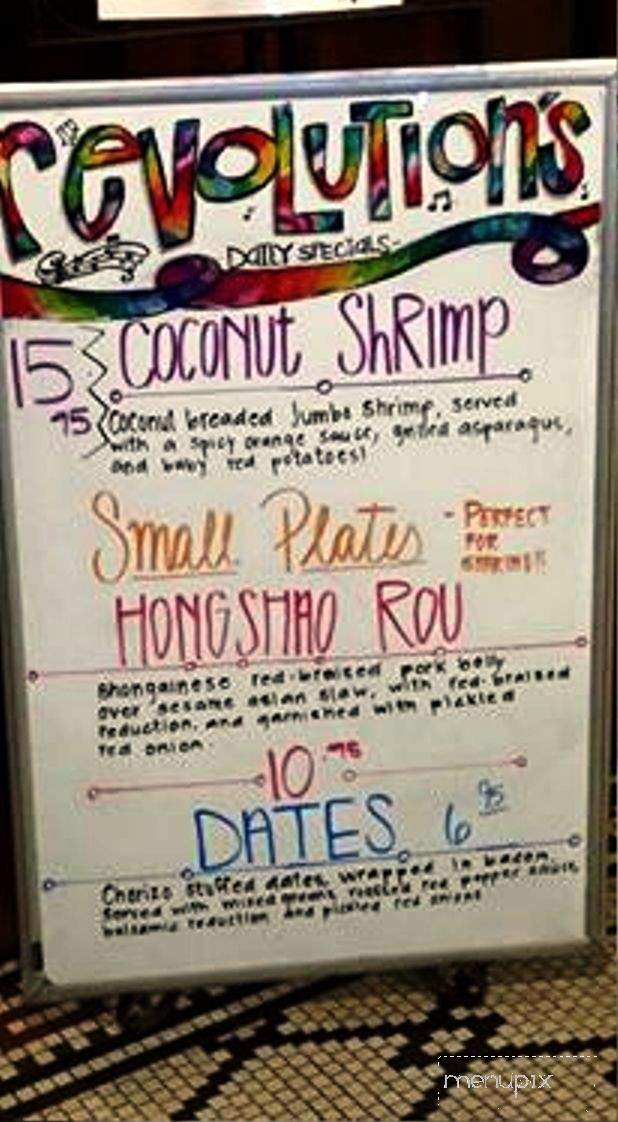 revolution's
DAILY SPECIALS-
15 95
COCONUT ShRImp
Coconut breaded Jumbo Shrimp, served
with a spicy orange sauce, grilled asparagus,
and baby red potatoes!
Small Plates
- PERFECT
FOR
SHARING!!
HONGSHAO ROU
Shongainese red-braised pork belly
over sesame asian slaw, with red-braised
reduction, and garnished with pickled
red onion.
10 .95
DATES 6 95
Chorizo stuffed dates, wrapped in bacon,
served with mixed greens, roasted red pepper sauce,
balsamic reduction and pickled red onions
menupix